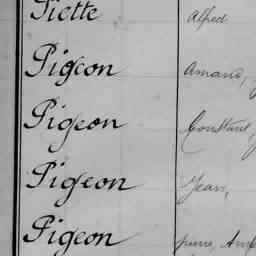 Piette Alfred
Pigeon Amand,
Pigeon Constant,
Pigeon Jean,
Pigeon pierre,